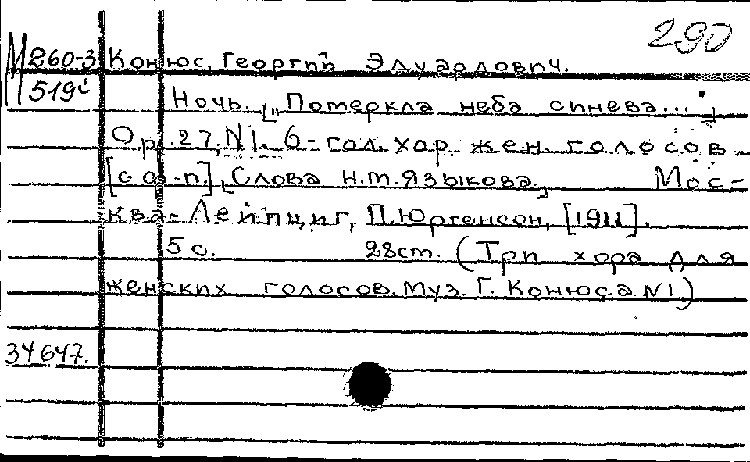 290
М260-3 Конюс, Георгий Эдуардович.
519с Ночь. ["Померкла неба синева..."]
Op. 27, N1. 6-гол. хор жен. голосов
[с ф.-п.] [Слова Н.М. Языкова.] Мос-
ква-Лейпциг, П. Юргенсон, [1911].
5 с. 28 см. (Три хора для
женских голосов. Муз. Г. Конюса N1)
34647.